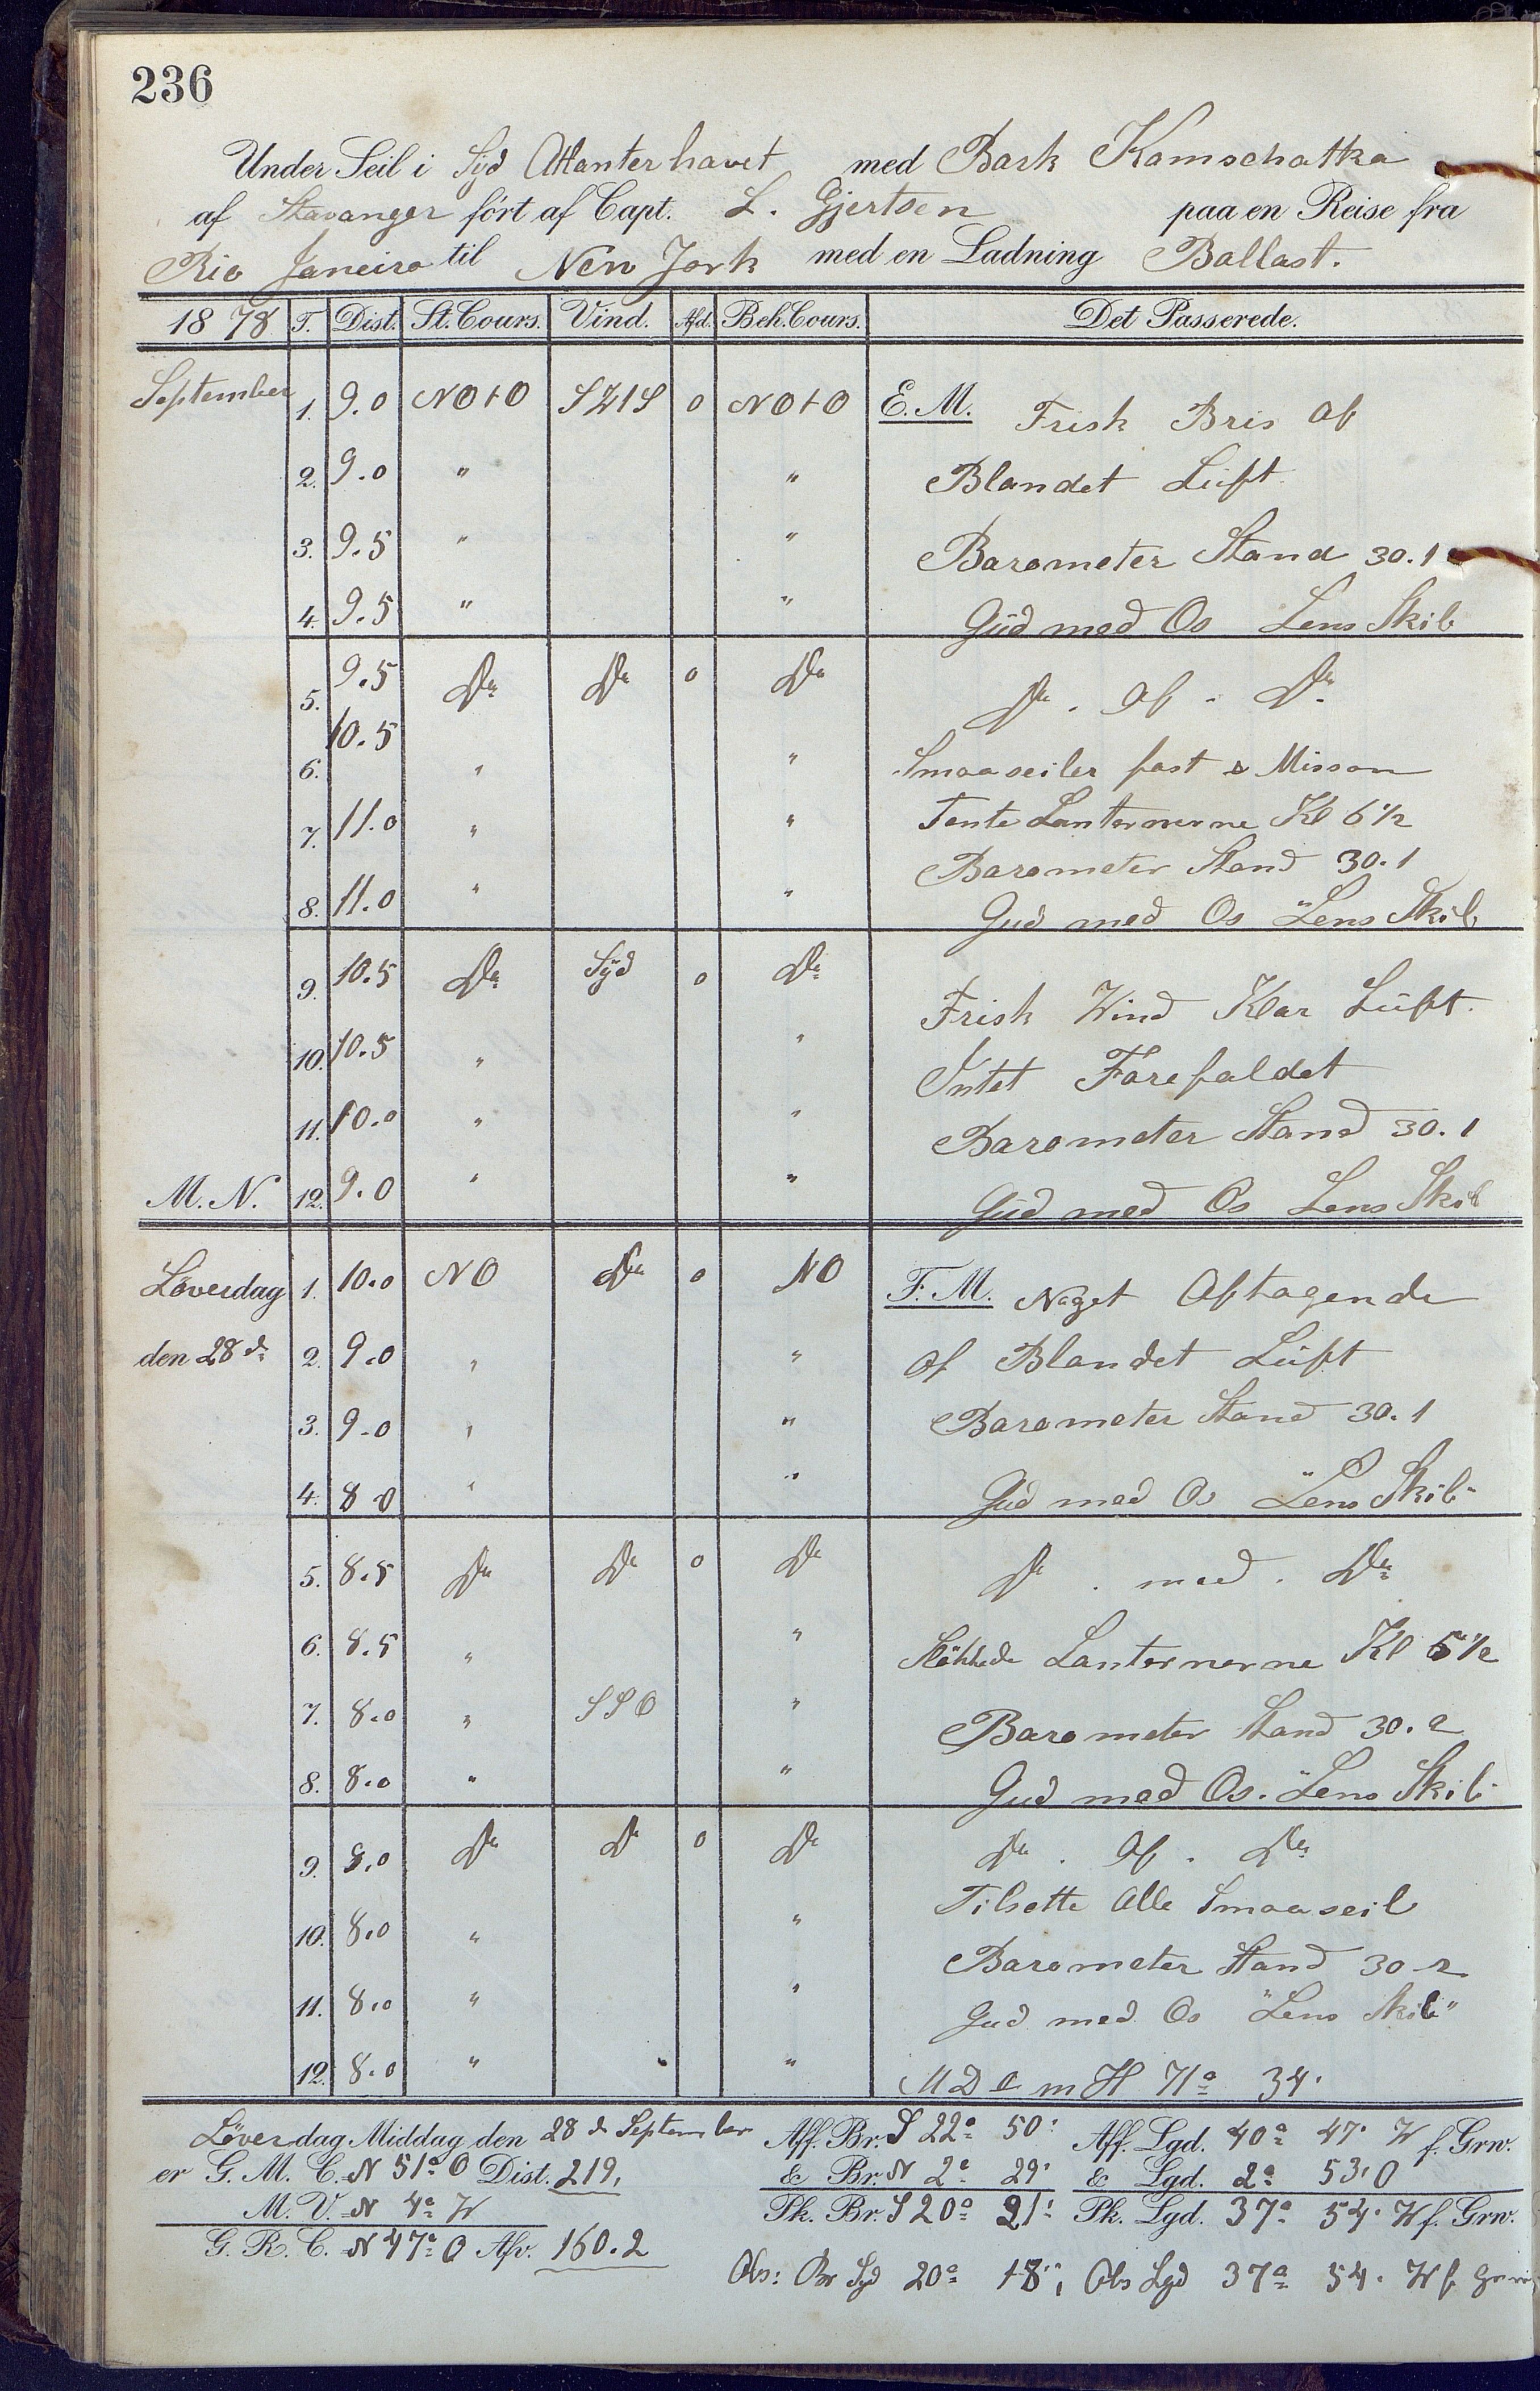 236
Under Seil i Syd Atlanterhavet med Bark Kamschatka
af Stavanger ført af Capt. L. Gjertsen paa en Reise fra
Rio Janeiro til New York med en Ladning Ballast.
1878 T. Dist. St. Cours. Vind. Afd. Beh. Cours. Det Passerede.
September 1. 9.0 NOtO 0 NOtO E.M. Frisk Bris Of
2. 9.0 " " Blandet Luft
3. 9.5 " " Barometer Stand 30.1
4. 9.5 " " Gud med Os Lens Skib
5. 9.5 Do Do 0 Do Do . Of . Do
6. 10.5 " " Smaaseiler fast & Missan
7. 11.0 " " Tente Lanternerne Kl 6 1/2
Barometer Stand 30.1
8. 11.0 " " Gud med Os "Lens Skib
9. 10.5 Do Syd 0 Do Frisk Vind Klar Luft.
10. 10.5 " " Intet Forefaldet
11. 10.0 " " Barometer Stand 30.1
M. N. 12. 9.0 " " Gud med Os Lens Skib
Løverdag 1. 10.0 NO Do 0 NO F.M. Noget Aftagende
den 28de 2. 9.0 " " Of Blandet Luft
3. 9.0 " " Barometer Stand 30.1
4. 8.0 " " Gud med Os "Lens Skib"
5. 8.5 Do Do 0 Do Do . med . Do
6. 8.5 " " Lanternerne Kl 5 1/2
7. 8.0 " SSO " Barometer Stand 30.2
8. 8.0 " " Gud med Os. "Lens Skib"
9. 8.0 Do Do 0 Do Do . Of . Do
Tilsatte Alle Smaaseil
10. 8.0 " "
Barometer Stand 30.2
11. 8.0 " " Gud med Os "Lens Skib"
12. 8.0 " " H 71° 34'
Løverdag Middag den 28de September Aff. Br. S 22° 50' Aff. Lgd. 40° 47' W f. Grw.
er G. M. C. N 51° O Dist. 219, & Br. N 2° 29' & Lgd. 2° 53' O
M. V. N 4° W Pk. Br. S 20° 21' Pk. Lgd. 37° 54' W f. Grw.
G. R. C. N 47° O Afv. 160.2
Obs: Br Syd 20° 18', Obs Lgd 37° 54' W f.